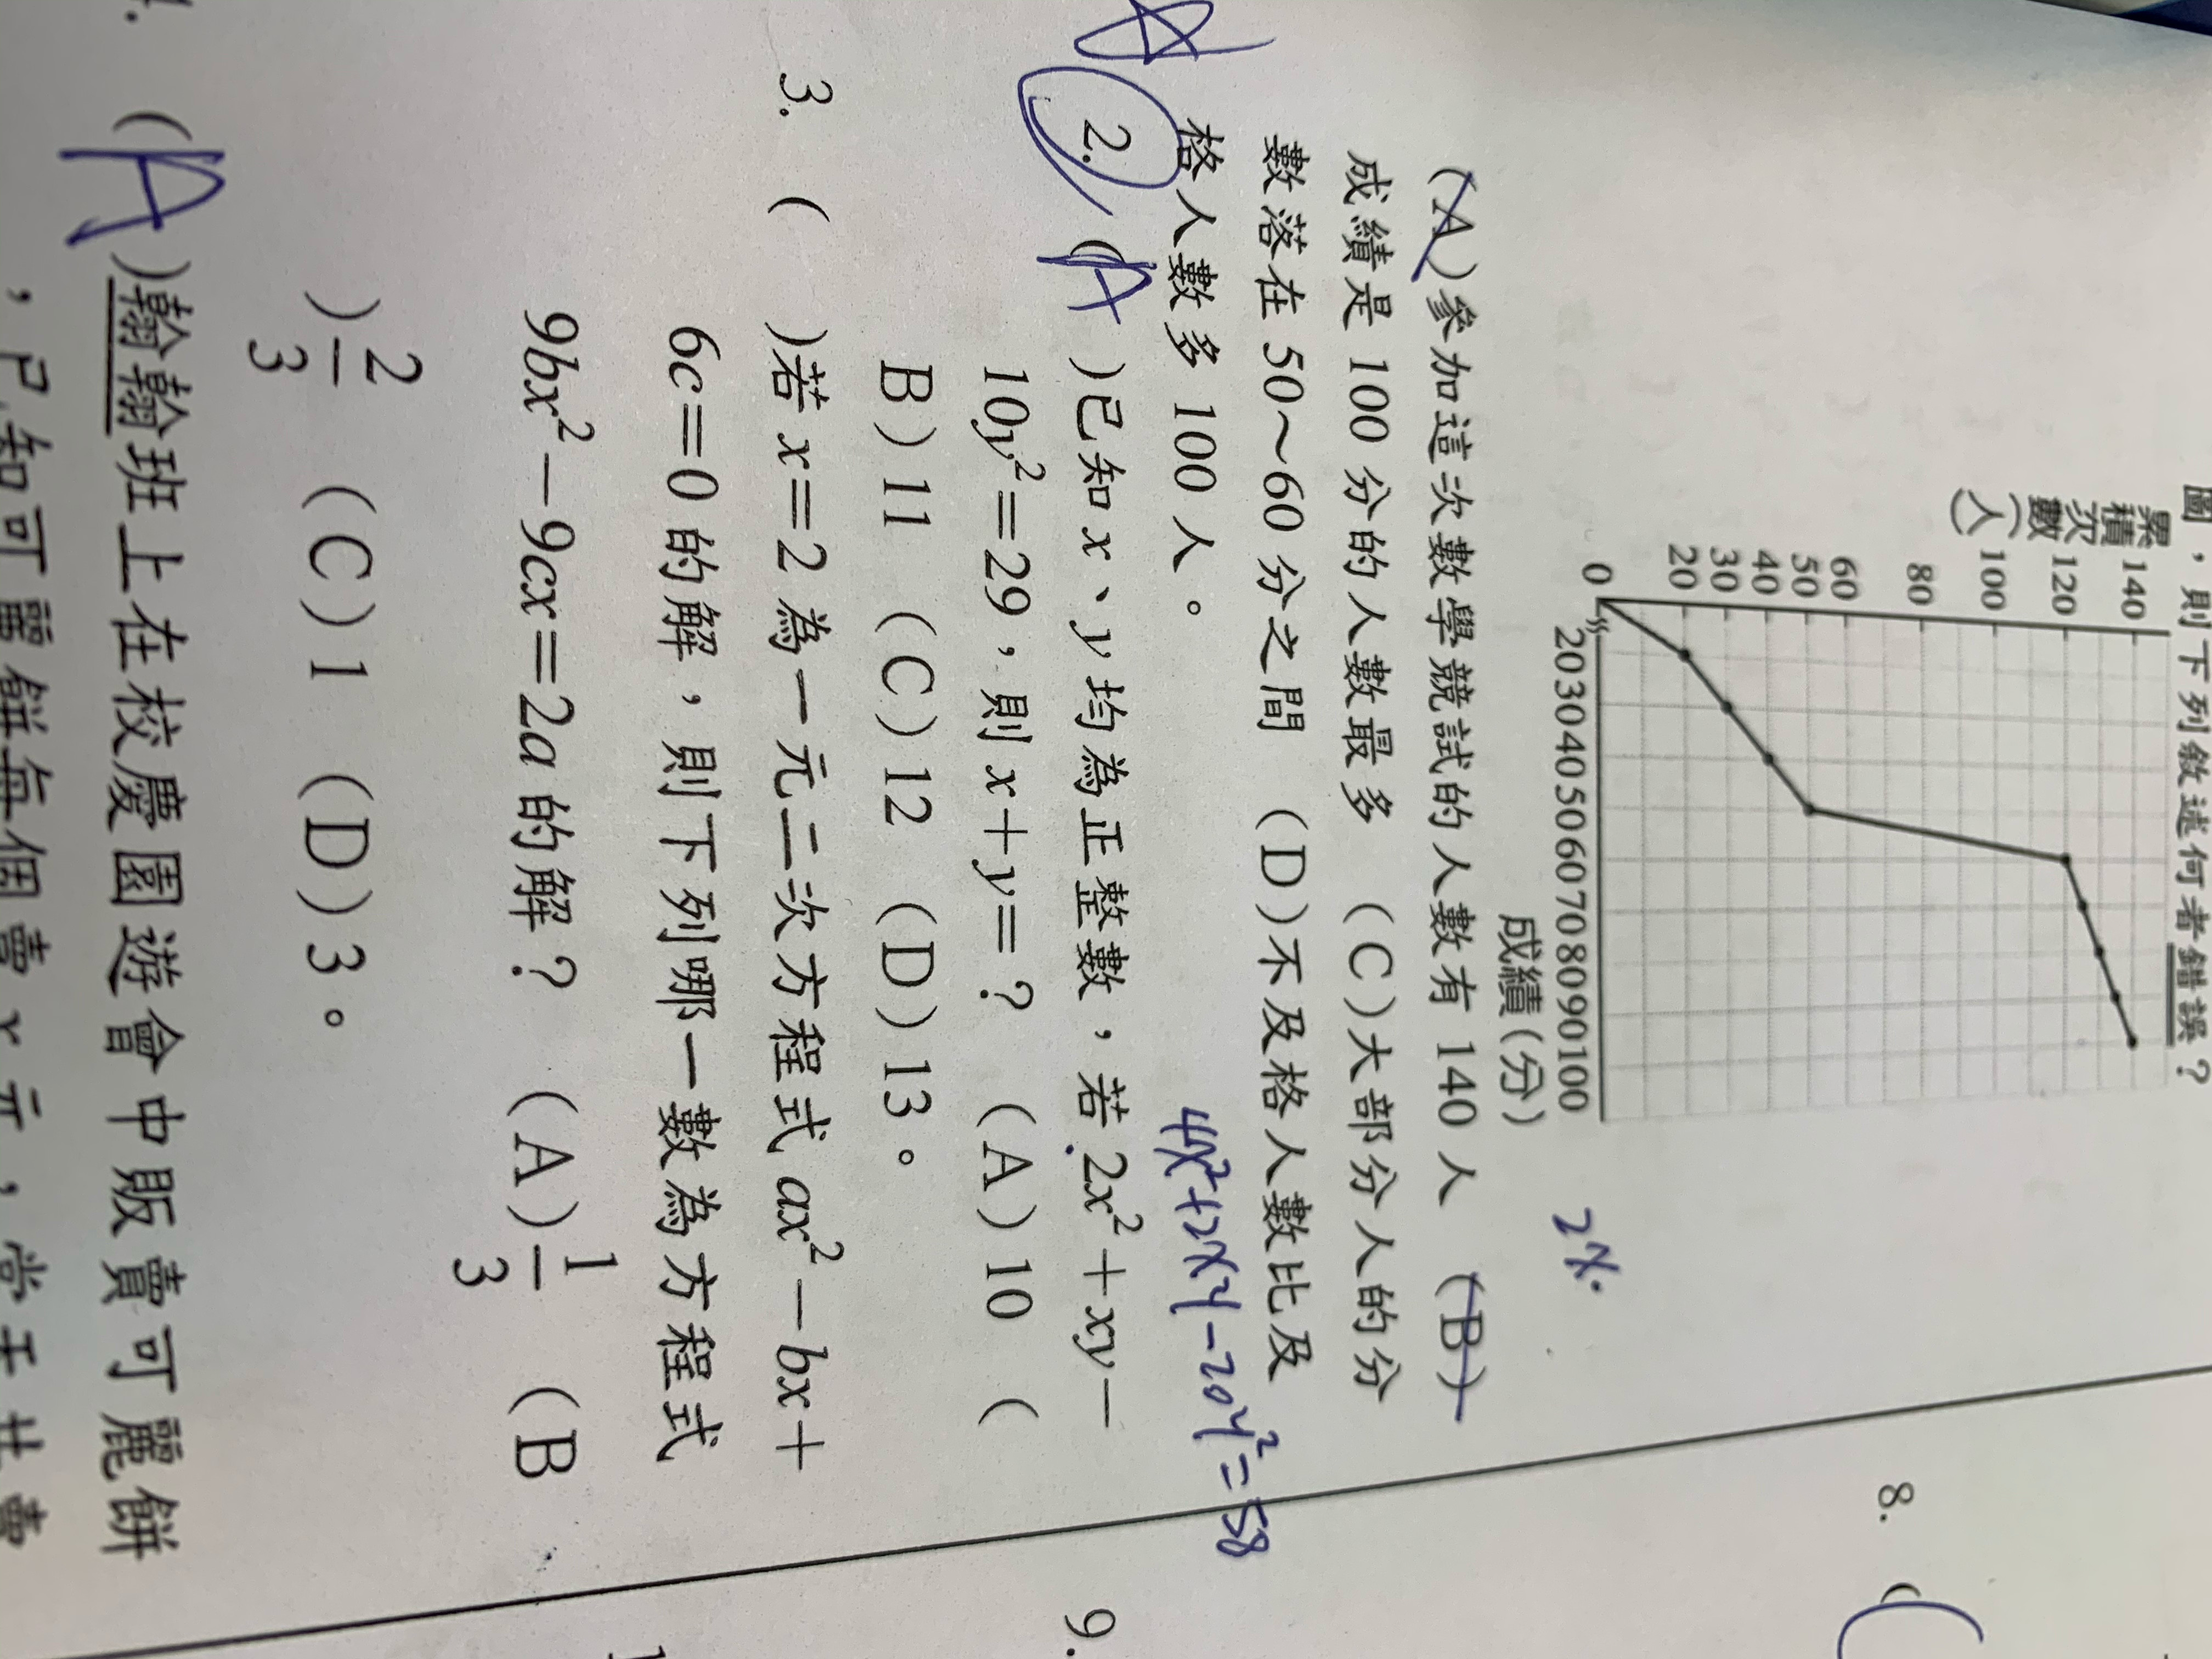 圖，則下列敘述何者錯誤？
累積次數(人)
140
120
100
80
60
50
40
30
20
0
2030405060708090100
成績(分)
2x.
(A)參加這次數學競試的人數有140人 (B)
成績是100分的人數最多 (C)大部分人的分
數落在50～60分之間 (D)不及格人數比及
格人數多100人。
4x²+2xy-20y²=58
2. (A)已知x、y均為正整數，若2x²+xy－
10y²=29，則x+y=？ (A)10 (
B)11 (C)12 (D)13。
3. ( )若x=2為一元二次方程式ax²－bx＋
6c=0的解，則下列哪一數為方程式
9bx²－9cx=2a的解？ (A)1/3 (B
)2/3 (C)1 (D)3。
(A)翰翰班上在校慶園遊會中販賣可麗餅
，已知可麗餅每個賣x元，
8. (
9.